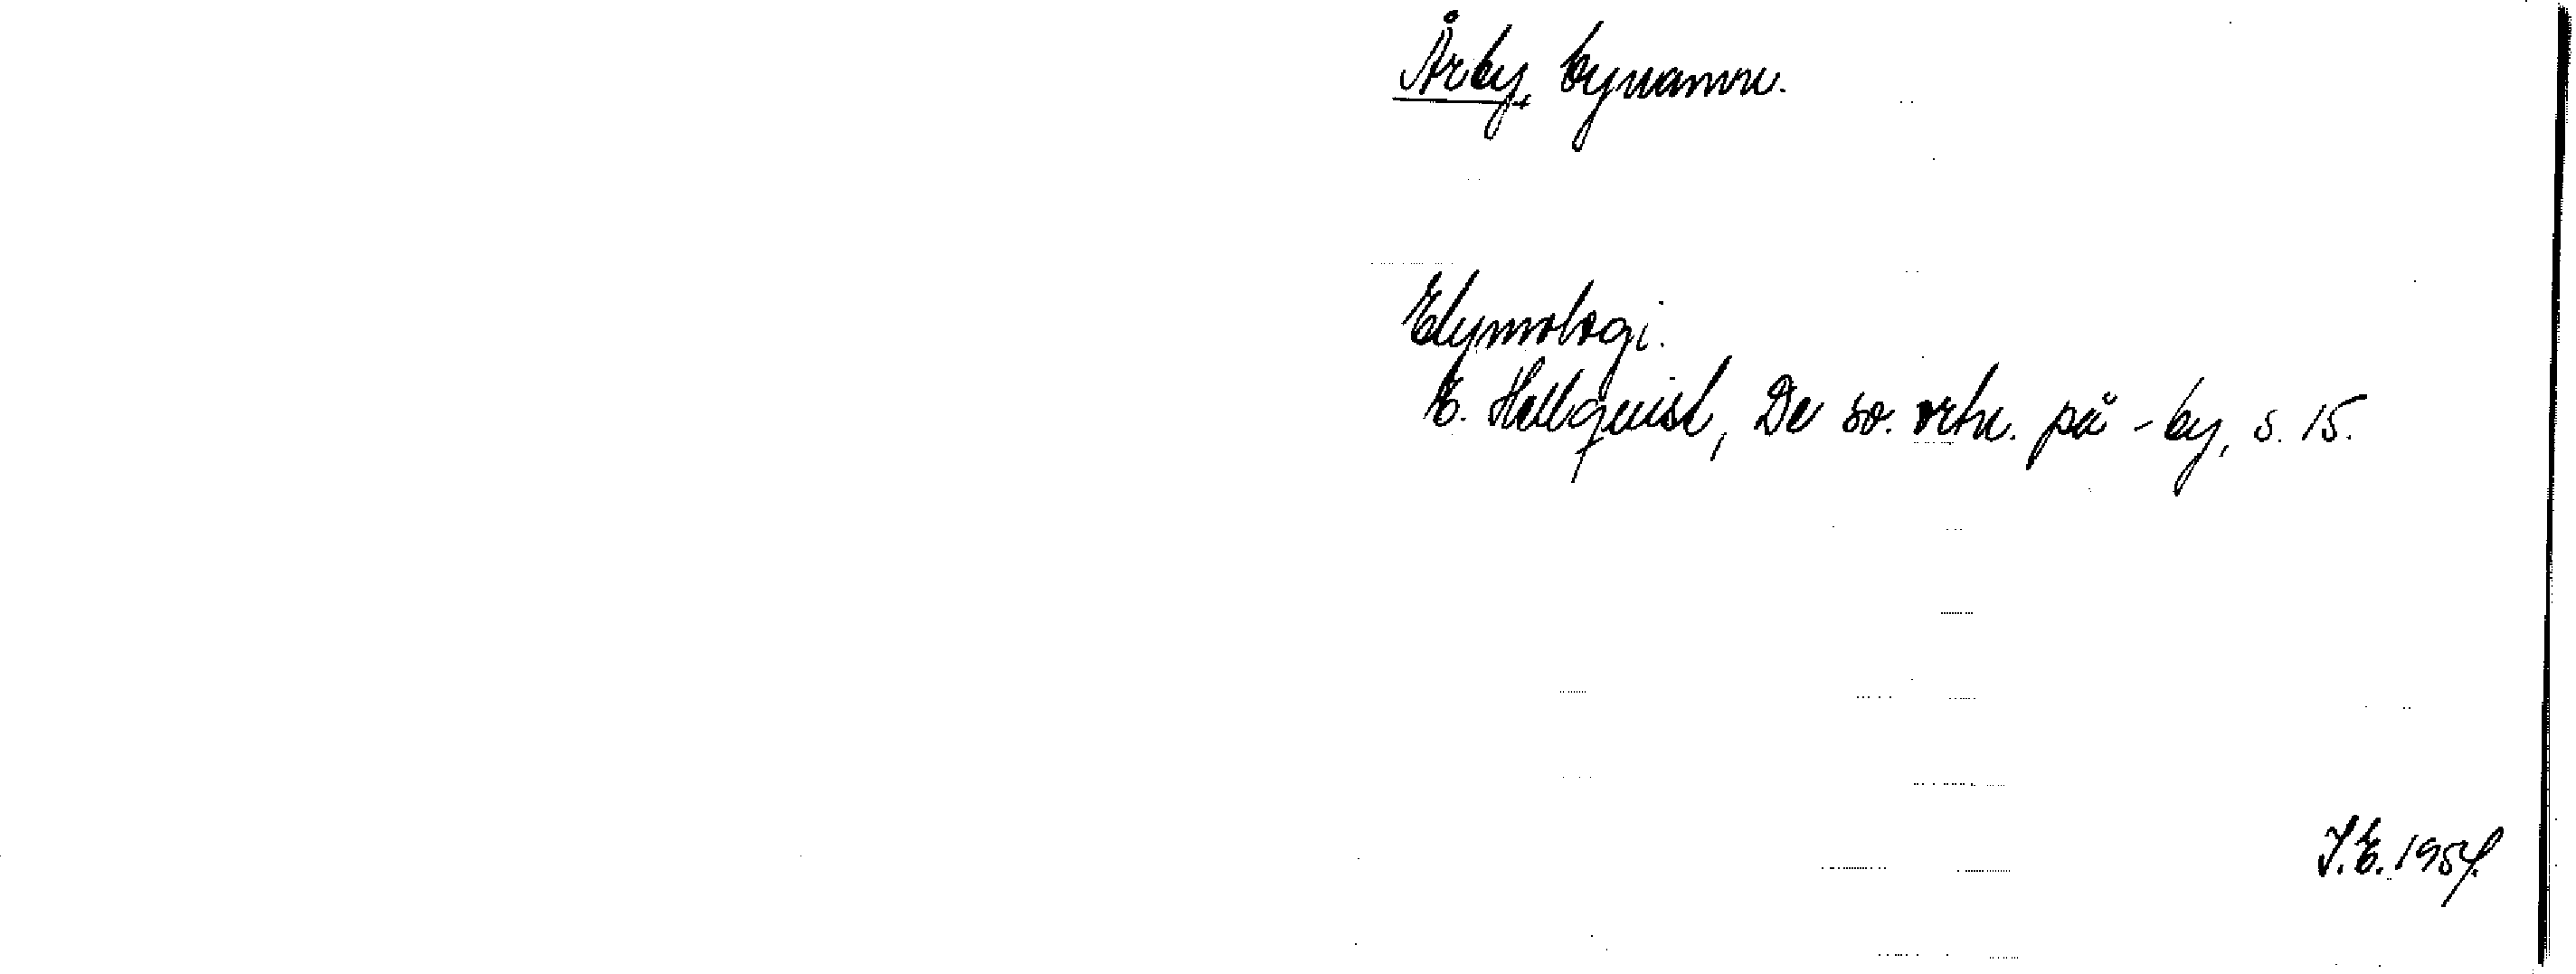 Årby, bynamn.
Etymologi.
E. Hellquist, De sv. ortn. på -by, s. 15.
I.E. 1954.